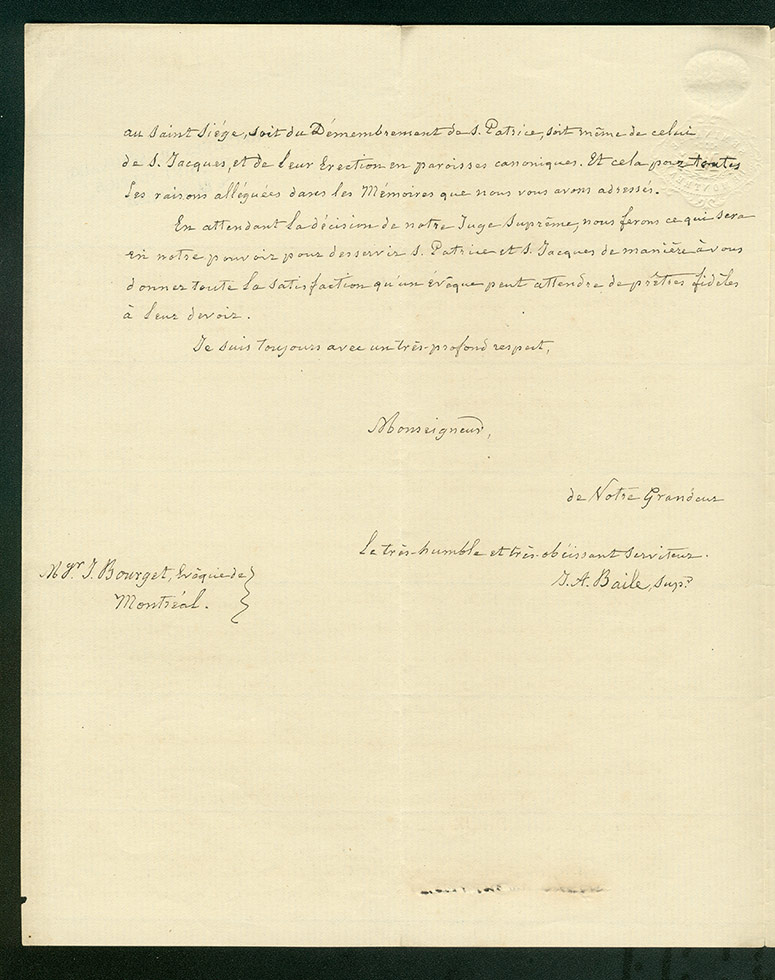 au Saint Siége, soit du Démembrement de S. Patrice, soit même de celui
de S. Jacques, et de leur Erection en paroisses canoniques. Et cela pour toutes
les raisons alléguées dans les Mémoires que nous vous avons adressés.
En attendant la décision de notre Juge Suprême, nous ferons ce qui sera
en notre pouvoir pour desservir S. Patrice et S. Jacques de manière à vous
donner toute la satisfaction qu'un évêque peut attendre de prêtres fidèles
à leur devoir.
Je suis toujours avec un très-profond respect,
Monseigneur,
de Votre Grandeur
Le très-humble et très-obéissant serviteur.
J. A. Baile, Supr.
Mgr. I. Bourget, Evêque de
Montréal.